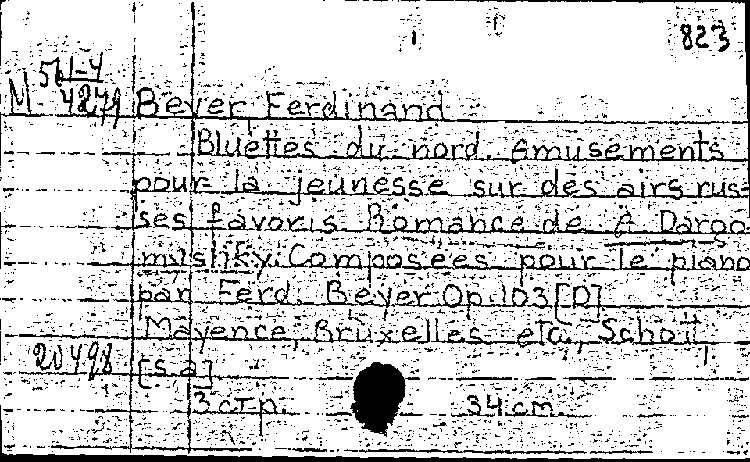 823
M 511-4
4279
Beyer, Ferdinand
Bluettes du nord. Amusements
pour la jeunesse sur des airs rus-
ses favoris. Romance de A. Dargo-
misliky. Composées pour le piano
par Ferd. Beyer. Op. 103 [D]
Mayence, Bruxelles etc., Schott,
20498 [s.a]
3 стр. 34 cm.